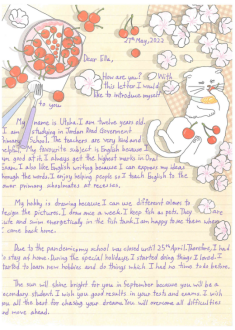 21st May, 2022
Dear Ella,
How are you? With
this letter I would
like to introduce myself
to you
My name is Utsha. I am twelve years old.
I am studying in Jordan Road Government
Primary School. The teachers are very kind and
helpful. My favourite subject is English because I
am good at it. I always get the highest marks in Oral
Exam. I also like English writing because I can express my ideas
through the words. I enjoy helping people so I teach English to the
lower primary schoolmates at recesses.
My hobby is drawing because I can use different colours to
design the pictures. I draw once a week. I keep fish as pets. They are
cute and swim energetically in the fish tank. I am happy to see them when
I come back home.
Due to the pandemic my school was closed until 25th April. Therefore, I had
to stay at home. During the special holidays, I started doing things I loved. I
started to learn new hobbies and do things which I had no time to do before.
The sun will shine bright for you in September because you will be a
secondary student. I wish you good results in your tests and exams. I wish
you all the best for chasing your dreams. You will overcome all difficulties
and move ahead.